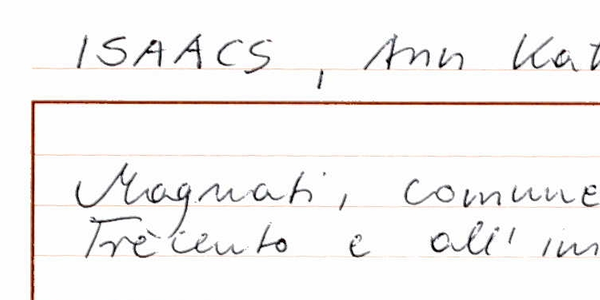 ISAACS, Ann Kat
Magnati, comune
Trecento e all' in